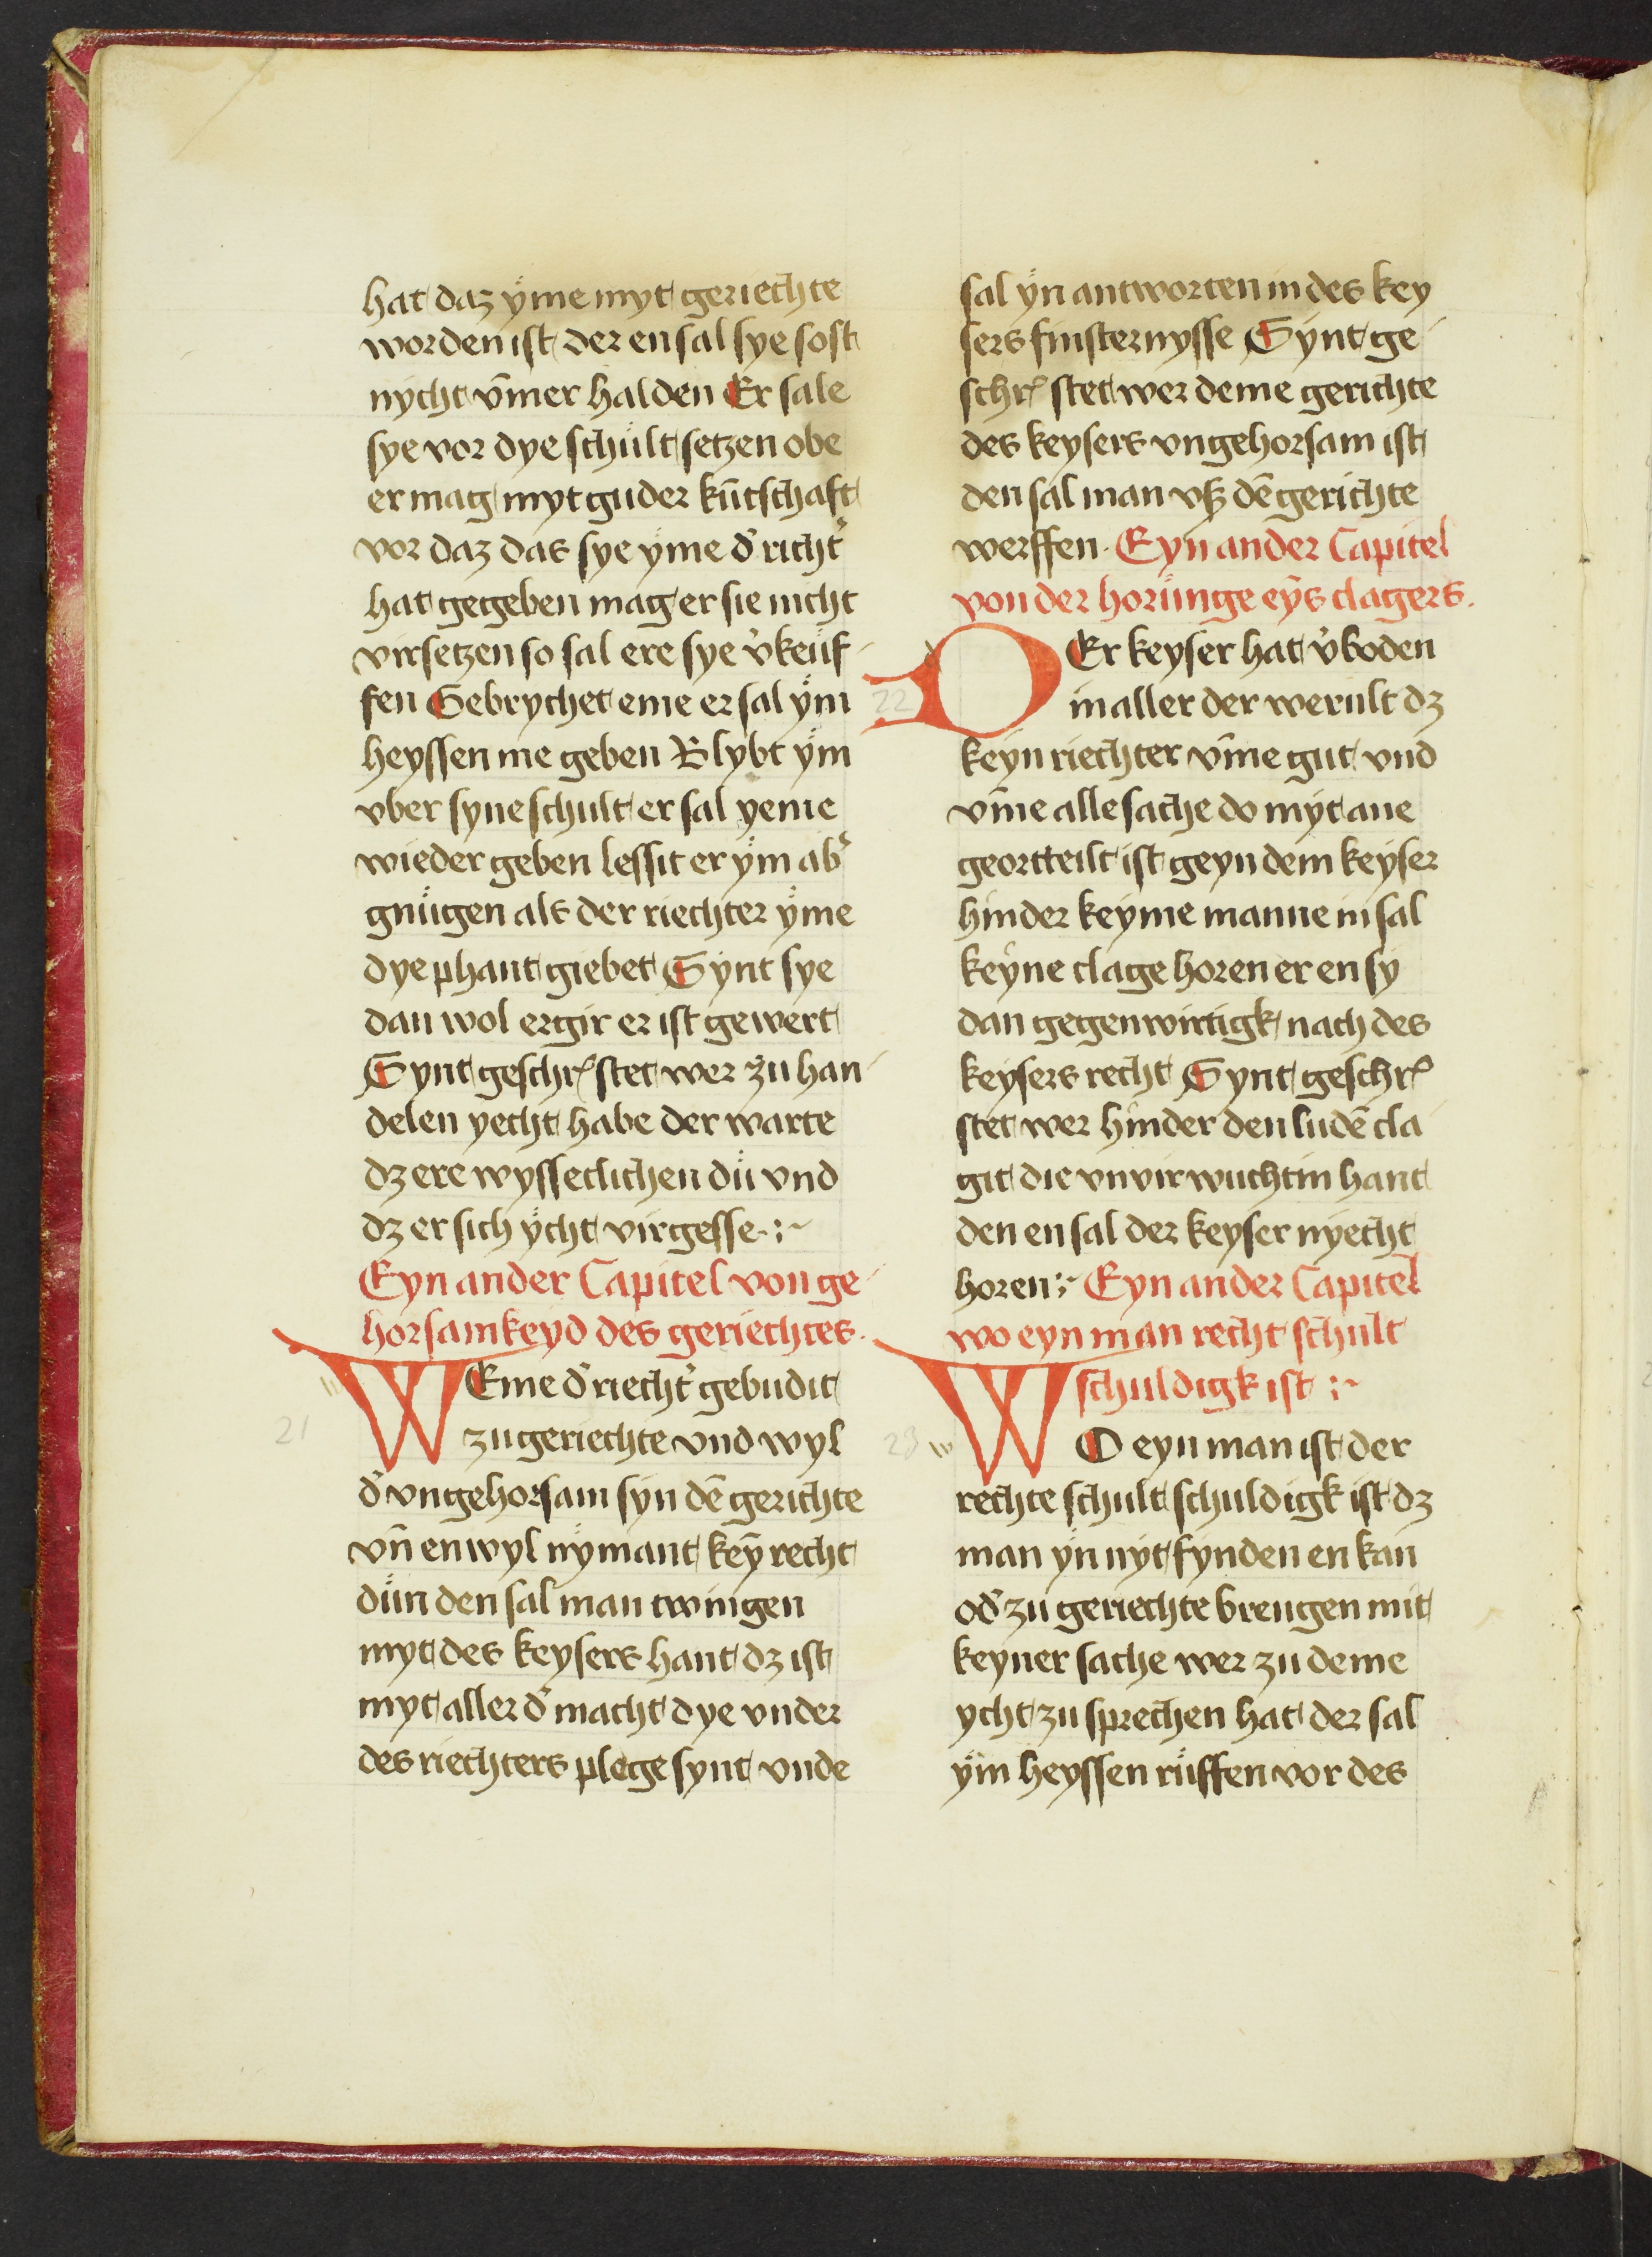 hat daz yme myt geriechte
worden ist der en sal sye sost
nycht vm̄er halden Er sale
sye vor dye schult setzen obe
er mag myt guder kūtschaft
vor daz das sye yme d' richt'
hat gegeben mag er sie nicht
virsetzen so sal ere sye v'keuf-
fen Gebrychet eme er sal ym
heyssen me geben Blybt ym
vber syne schult er sal yeme
wieder geben lessit er ym ab'
gnügen als der riechter yme
dye phant giebet Synt sye
dan wol ergir er ist gewert
Synt geschr' stet wer zu han-
delen yecht habe der warte
dz ere wysseclichen dü vnd
dz er sich ycht virgesse.:~
Eyn ander Capitel von ge-
horsamkeyd des geriechtes.
21
WEme d' riecht' gebudit
zu geriechte vnd wyl
d' vngehorsam syn dē gerichte
vn̄ en wyl nymant keȳ recht
dün den sal man twingen
myt des keysers hant dz ist
myt aller d' macht dye vnder
des riechters plege synt vnde
sal yn antworten in des key
sers finsternysse Synt ge-
schr' stet wer deme gerichte
des keysers vngehorsam ist
den sal man vß dē gerichte
werffen. Eyn ander Capitel
von der horünge eȳs clagers.
22
DEr keyser hat v'boden
in aller der werult dz
keyn riechter vm̄e gut vnd
vm̄e alle sache do myt ane
geortteilt ist geyn dem keyser
hinder keyme manne in sal
keyne clage horen er en sy
dan gegenwirtigk nach des
keysers recht Synt geschr'
stet wer hinder den ludē cla-
git die vnvirwuchtin hant
den en sal der keyser nyecht
horen:~ Eyn ander Capitel
wo eyn man recht schult
schuldigk ist :~
23
WO eyn man ist der
rechte schult schuldigk ist dz
man yn nyt fynden en kan
od' zu geriechte brengen mit
keyner sache wer zu deme
ycht zu sprechen hat der sal
ym heyssen rüffen vor des